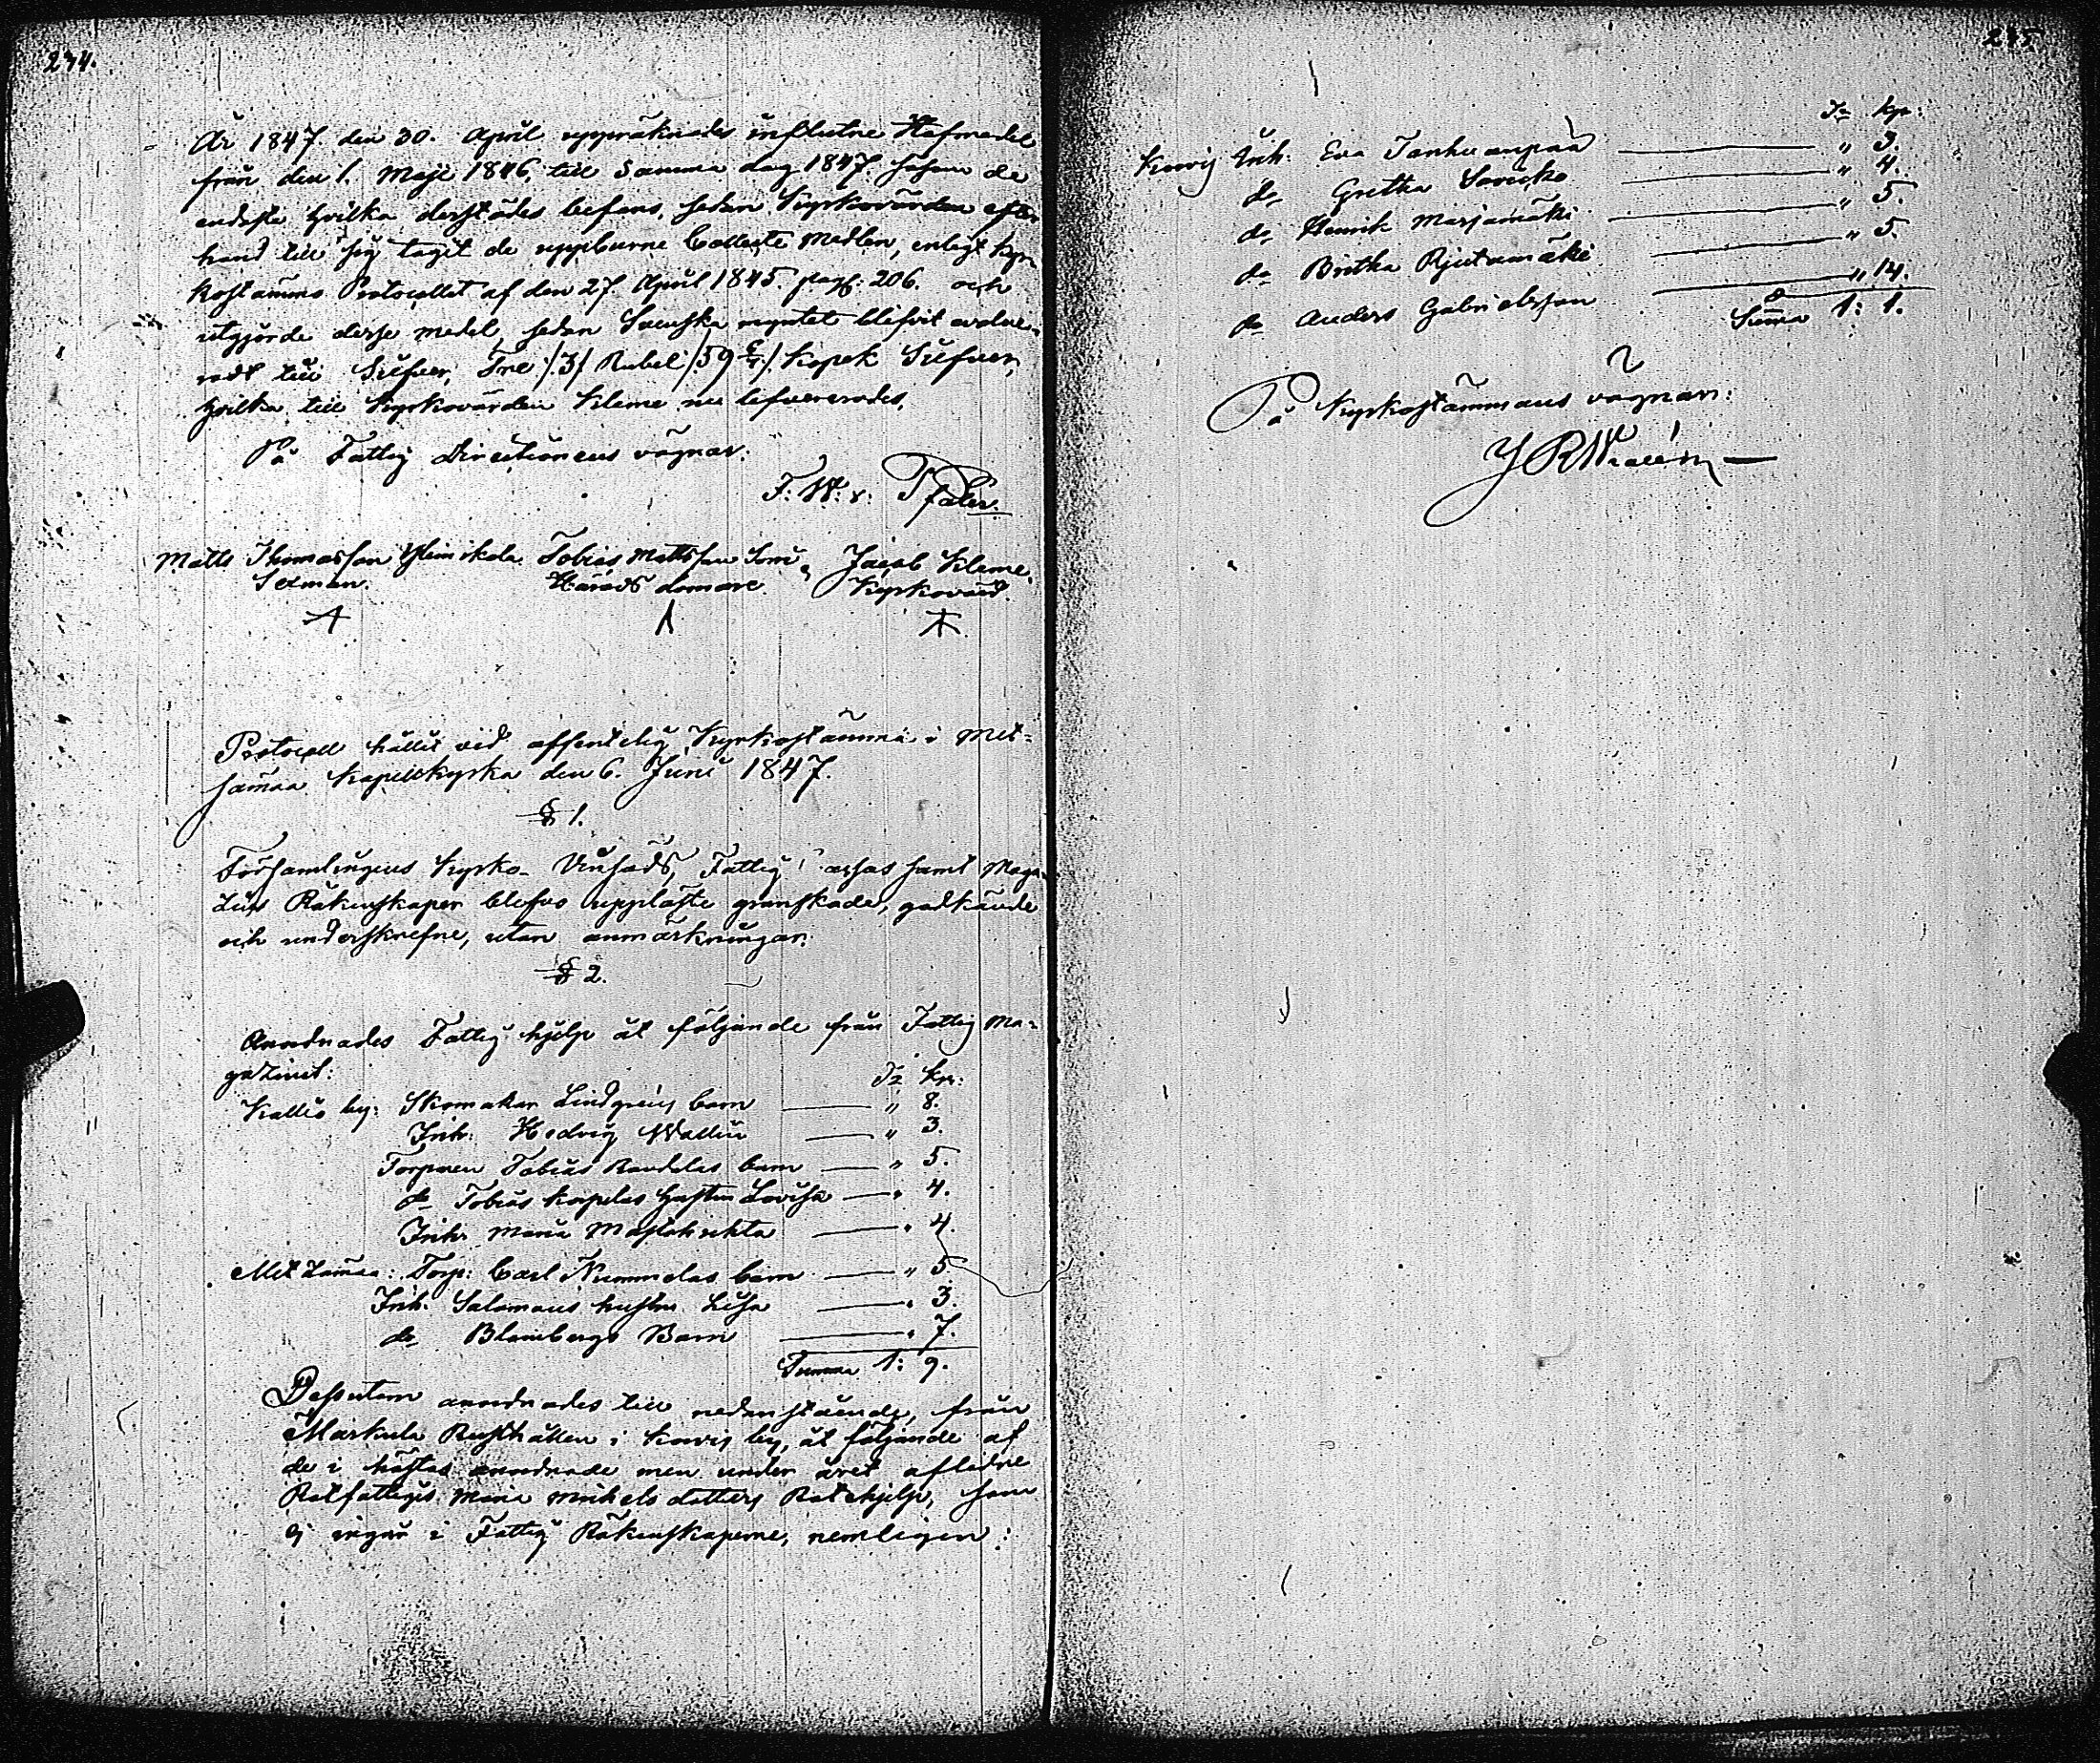 234.
År 1847 den 30. April uppräknades influtne Håfmedel
från den 1. Maji 1846, till samma dag 1847, såsom de
endaste hvilka derstädes befans, sedan Kyrkovärden efter
hand till sig tagit de uppburne Collecte Medlen, enligt Kyr-
kostämmo Protocollet af den 27. April 1845. pag: 206. och
utgjorde desse medel, sedan Svenska myntet blifvit evalve-
radt till Silfver, Tre /:3:/ Rubel /:59 :/ Kopek Silfver,
hvilka till Kyrkovärden Kleme nu lefvererades.
På Fattig Directionens vägnar:
F: W: v: Pfaler.
Matts Thomasson Yleniskala Tobias Mattsson Jacob Kleme
Sexman. Härads domare. Kyrkovärd.
Protocoll hållit vid offentelig Kyrkostämma i Met-
samaa Kapellkyrka den 6. Junii 1847.
§ 1.
Församlingens Kyrko- Vinsäds, Fattig Cassas samt Maga-
zins Räkenskaper blefvo uppläste granskade, godkände
och underskrefne, utan anmärkningar.
§ 2.
Anordnades Fattig hjelp åt följande från Fattig Ma-
gazinet:
Tr kpr:
Kallio by: Skomakar Lindgrens barn " 8.
Inh: Hedvig Wallin " 3.
Torparen Tobias Randelas barn " 5.
do Tobias Korpelas hustru Lovisa " 4.
Inh: Maria " 4.
Metzamaa: Torp: Carl Nummelas barn " 5.
Inh: Salomons hustru Lisa " 3.
do Blombergs Barn " 7.
Summa 1: 9.
Dessutom anordnades till nedanstående, från
Markula Rusthållen i Kovis by, åt följande af
de i höstas anordnade men under året aflidne
Rotfattigis Maria Michelsdotters Rotehjelp, som
ej ingår i Fattig Räkenskaperne, nemligen:
235.
Tr kpr:
Kovis Inh: Eva Tanhuanpää " 3.
do Gretha " 4.
do Henrik Marjamäki " 5.
do Britha " 5.
do Anders Gabrielsson " 14.
Summa 1: 1.
På Kyrkostämmans vägnar: